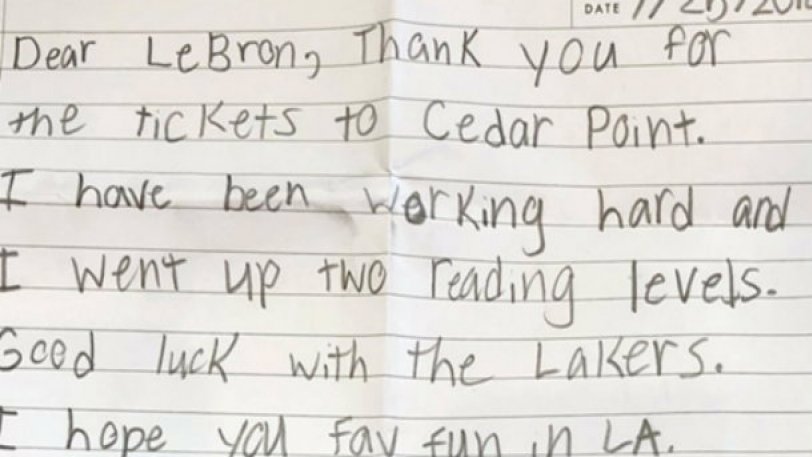 DATE
Dear LeBron, Thank you for
the tickets to Cedar Point.
I have been working hard and
I went up two reading levels.
Good luck with the Lakers.
I hope you fav fun in LA.